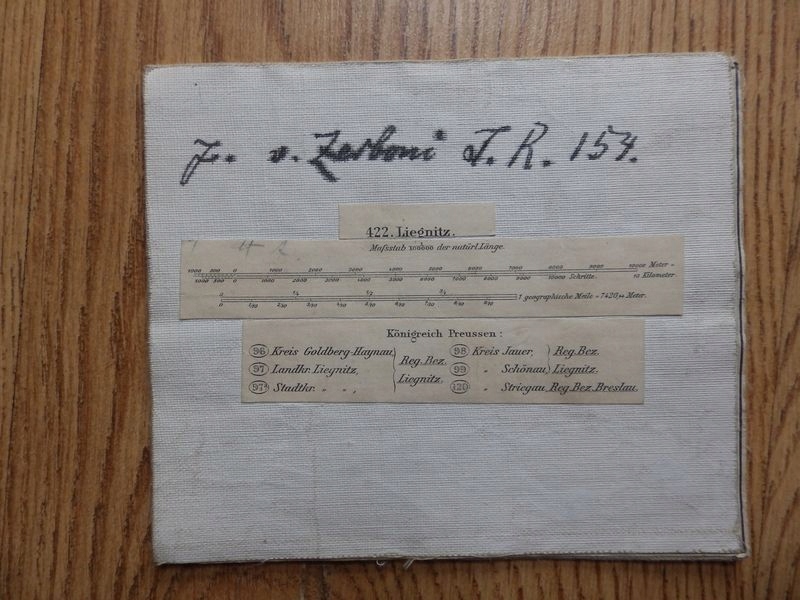 J. v. Zerboni J. R. 154.
422. Liegnitz.
Maſsstab 1:100000 der natürl. Länge.
1000 500 0 1000 2000 3000 4000 5000 6000 7000 8000 9000 10000 Meter =
1000 500 0 1000 2000 3000 4000 5000 6000 7000 8000 9000 10000 Schritte. 10 Kilometer
0 1/4 1/2 3/4 1 geographische Meile = 7420,44 Meter.
0 1/10 2/10 3/10 4/10 5/10 6/10 7/10 8/10 9/10
Königreich Preussen:
96 Kreis Goldberg-Haynau, 98 Kreis Jauer, Reg. Bez.
97 Landkr. Liegnitz, Reg. Bez. 99 „ Schönau, Liegnitz.
97a Stadtkr. „ „ Liegnitz. 120 „ Striegau, Reg. Bez. Breslau.